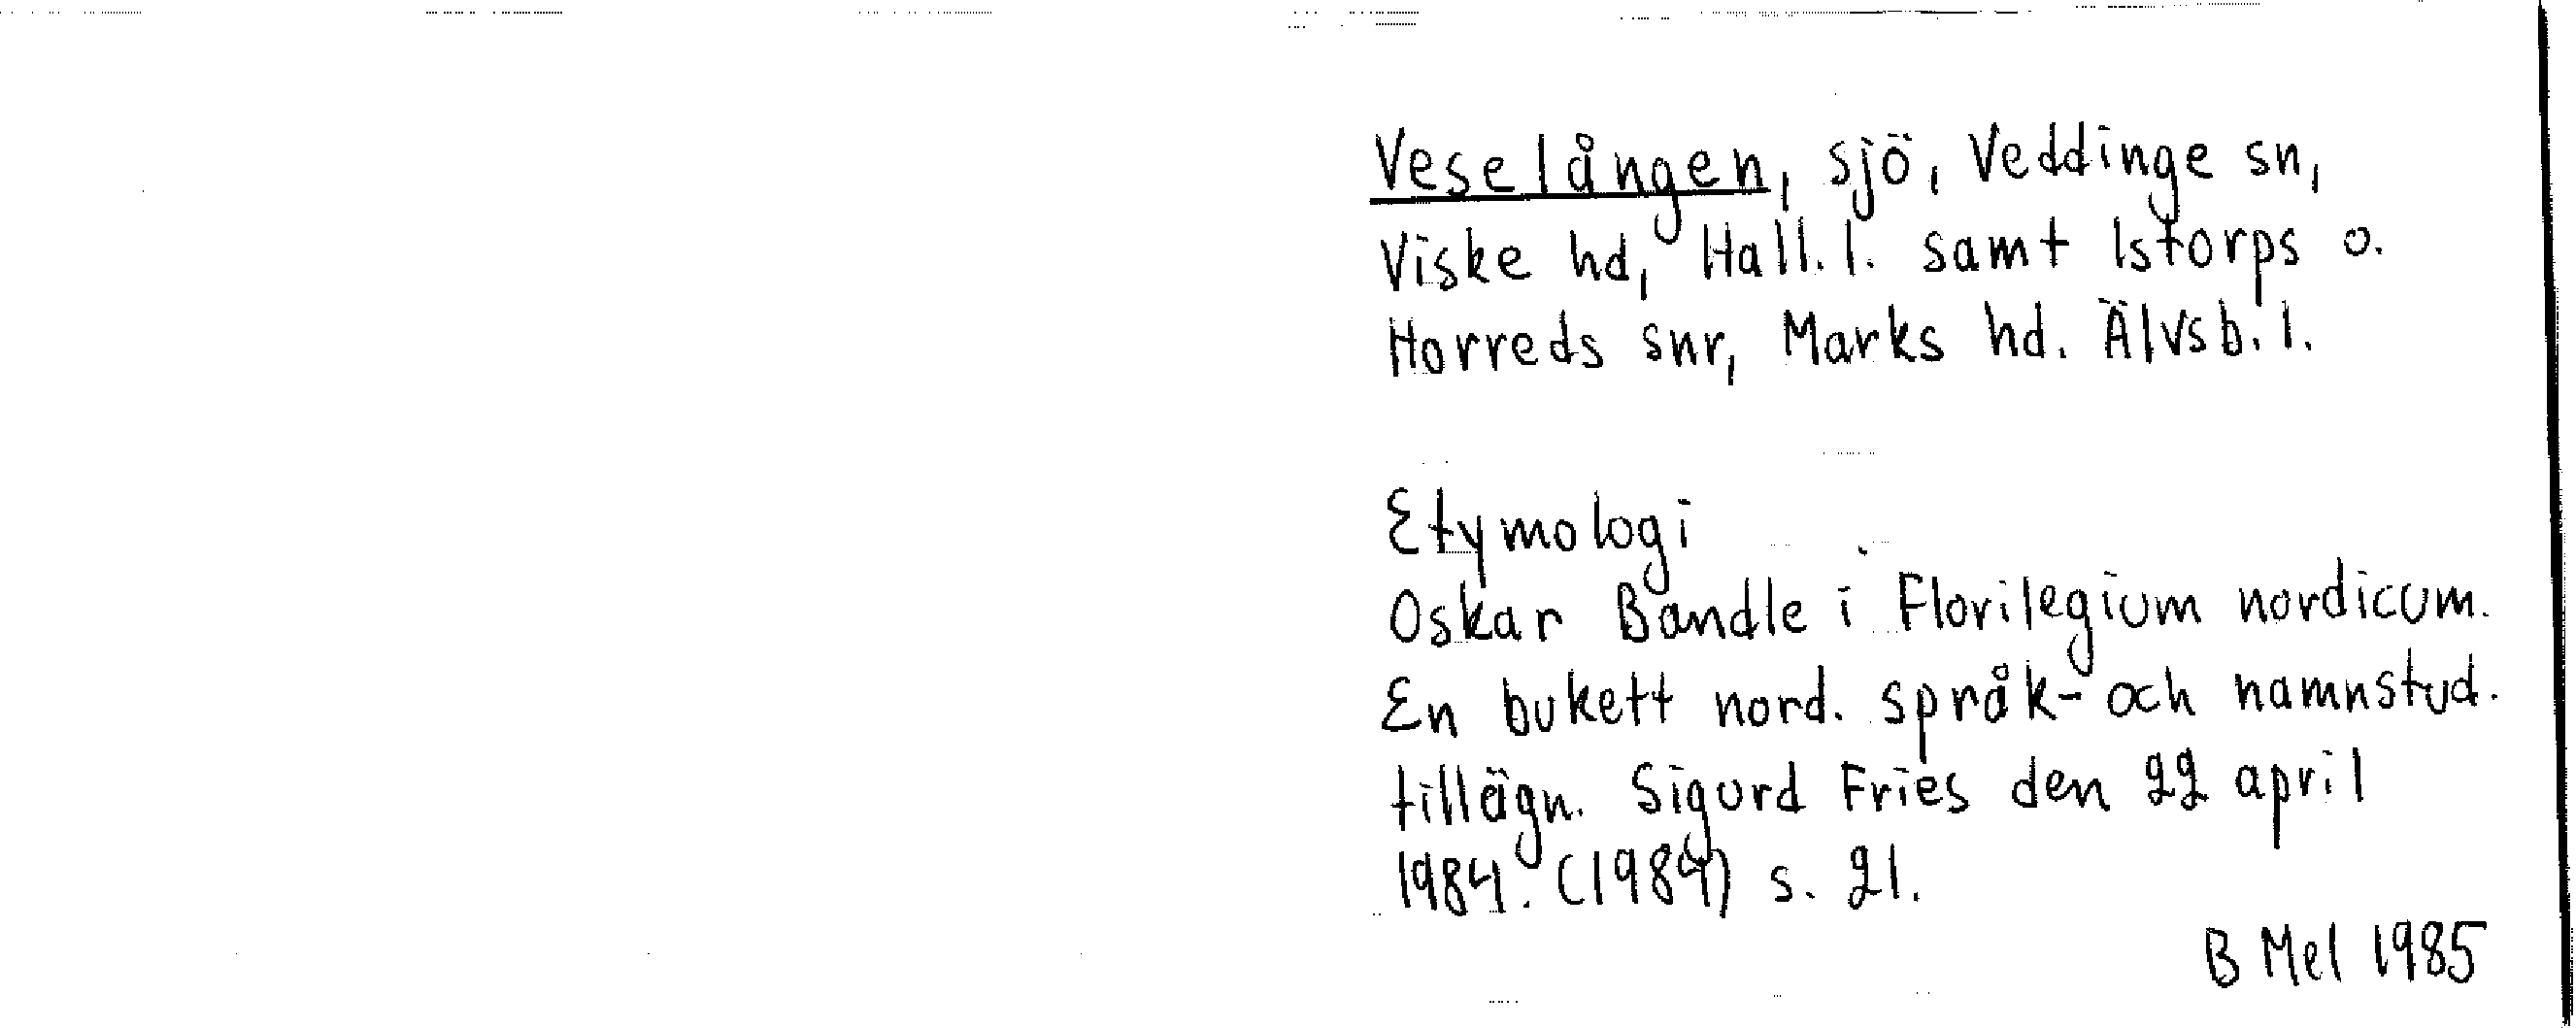 Veselången, sjö, Veddinge sn,
Viske hd, Hall. l. samt Istorps o.
Horreds snr, Marks hd. Älvsb. l.
Etymologi
Oskar Bandle i Florilegium nordicum.
En bukett nord. språk- och namnstud.
tillägn. Sigurd Fries den 22 april
1984. (1984) s. 21.
B Mel 1985